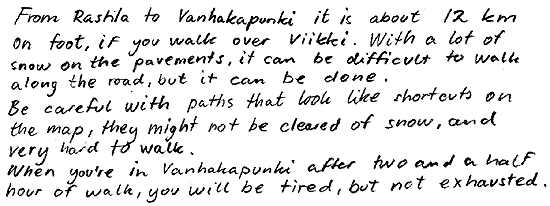 From Rastila to Vanhakapunki it is about 12 km
on foot, if you walk over Viikki. With a lot of
snow on the pavements, it can be difficult to walk
along the road, but it can be done.
Be careful with paths that look like shortcuts on
the map, they might not be cleared of snow, and
very hard to walk.
When you're in Vanhakapunki after two and a half
hour of walk, you will be tired, but not exhausted.